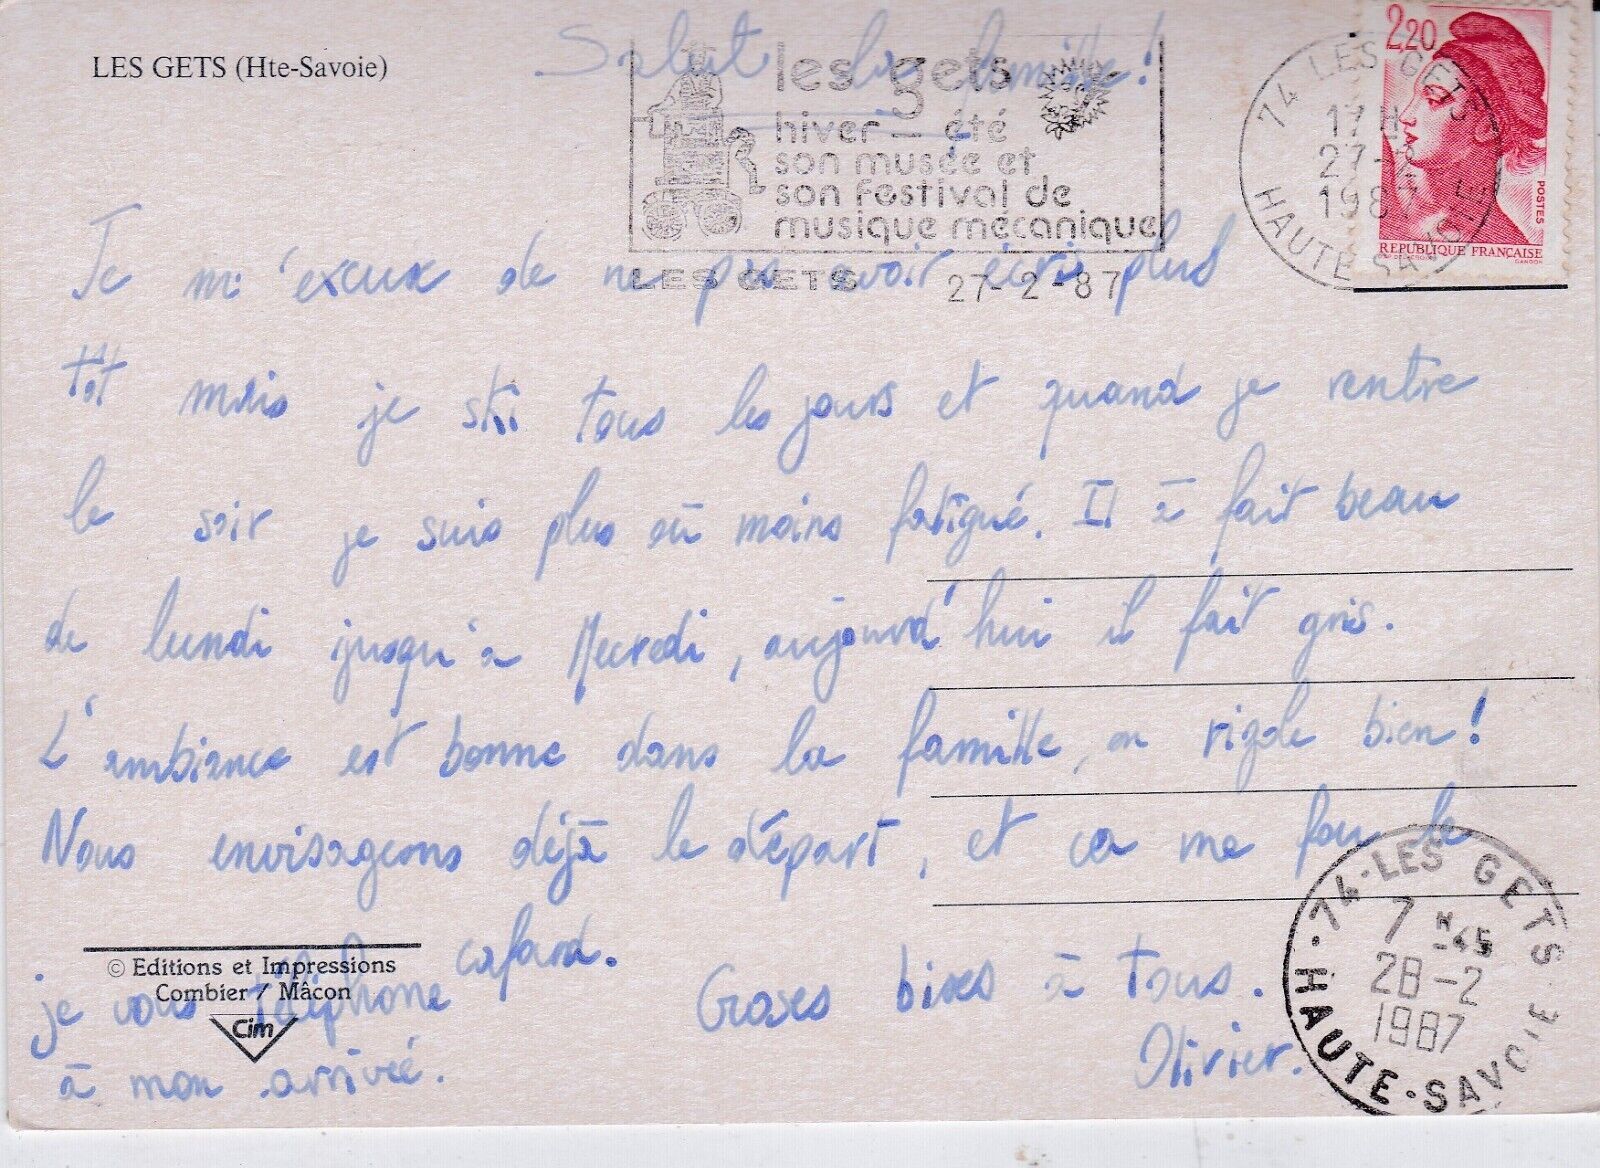 LES GETS (Hte-Savoie)
Salut la famille!
les gets
hiver - été
son musée et
son festival de
musique mécanique
LES GETS 27-2-87
74 LES GETS
17H
27-
198
HAUTE-SAVOIE
2,20
POSTES
REPUBLIQUE FRANÇAISE
GANDON
Je m'excux de ne pas avoir écris plus
tôt mais je ski tous les jours et quand je rentre
le soir je suis plus où moins fatigué. Il à fait beau
de lundi jusqu'à Mecredi, aujourd'hui il fait gris.
L'ambiance est bonne dans la famille, on rigole bien!
Nous envisageons déjà le départ, et ca me fou le
cafard.
je vous téléphone
à mon arrivée.
Groses bises à tous.
Olivier.
© Editions et Impressions
Combier / Mâcon
Cim
74-LES GETS
7H-45
28-2
1987
HAUTE-SAVOIE